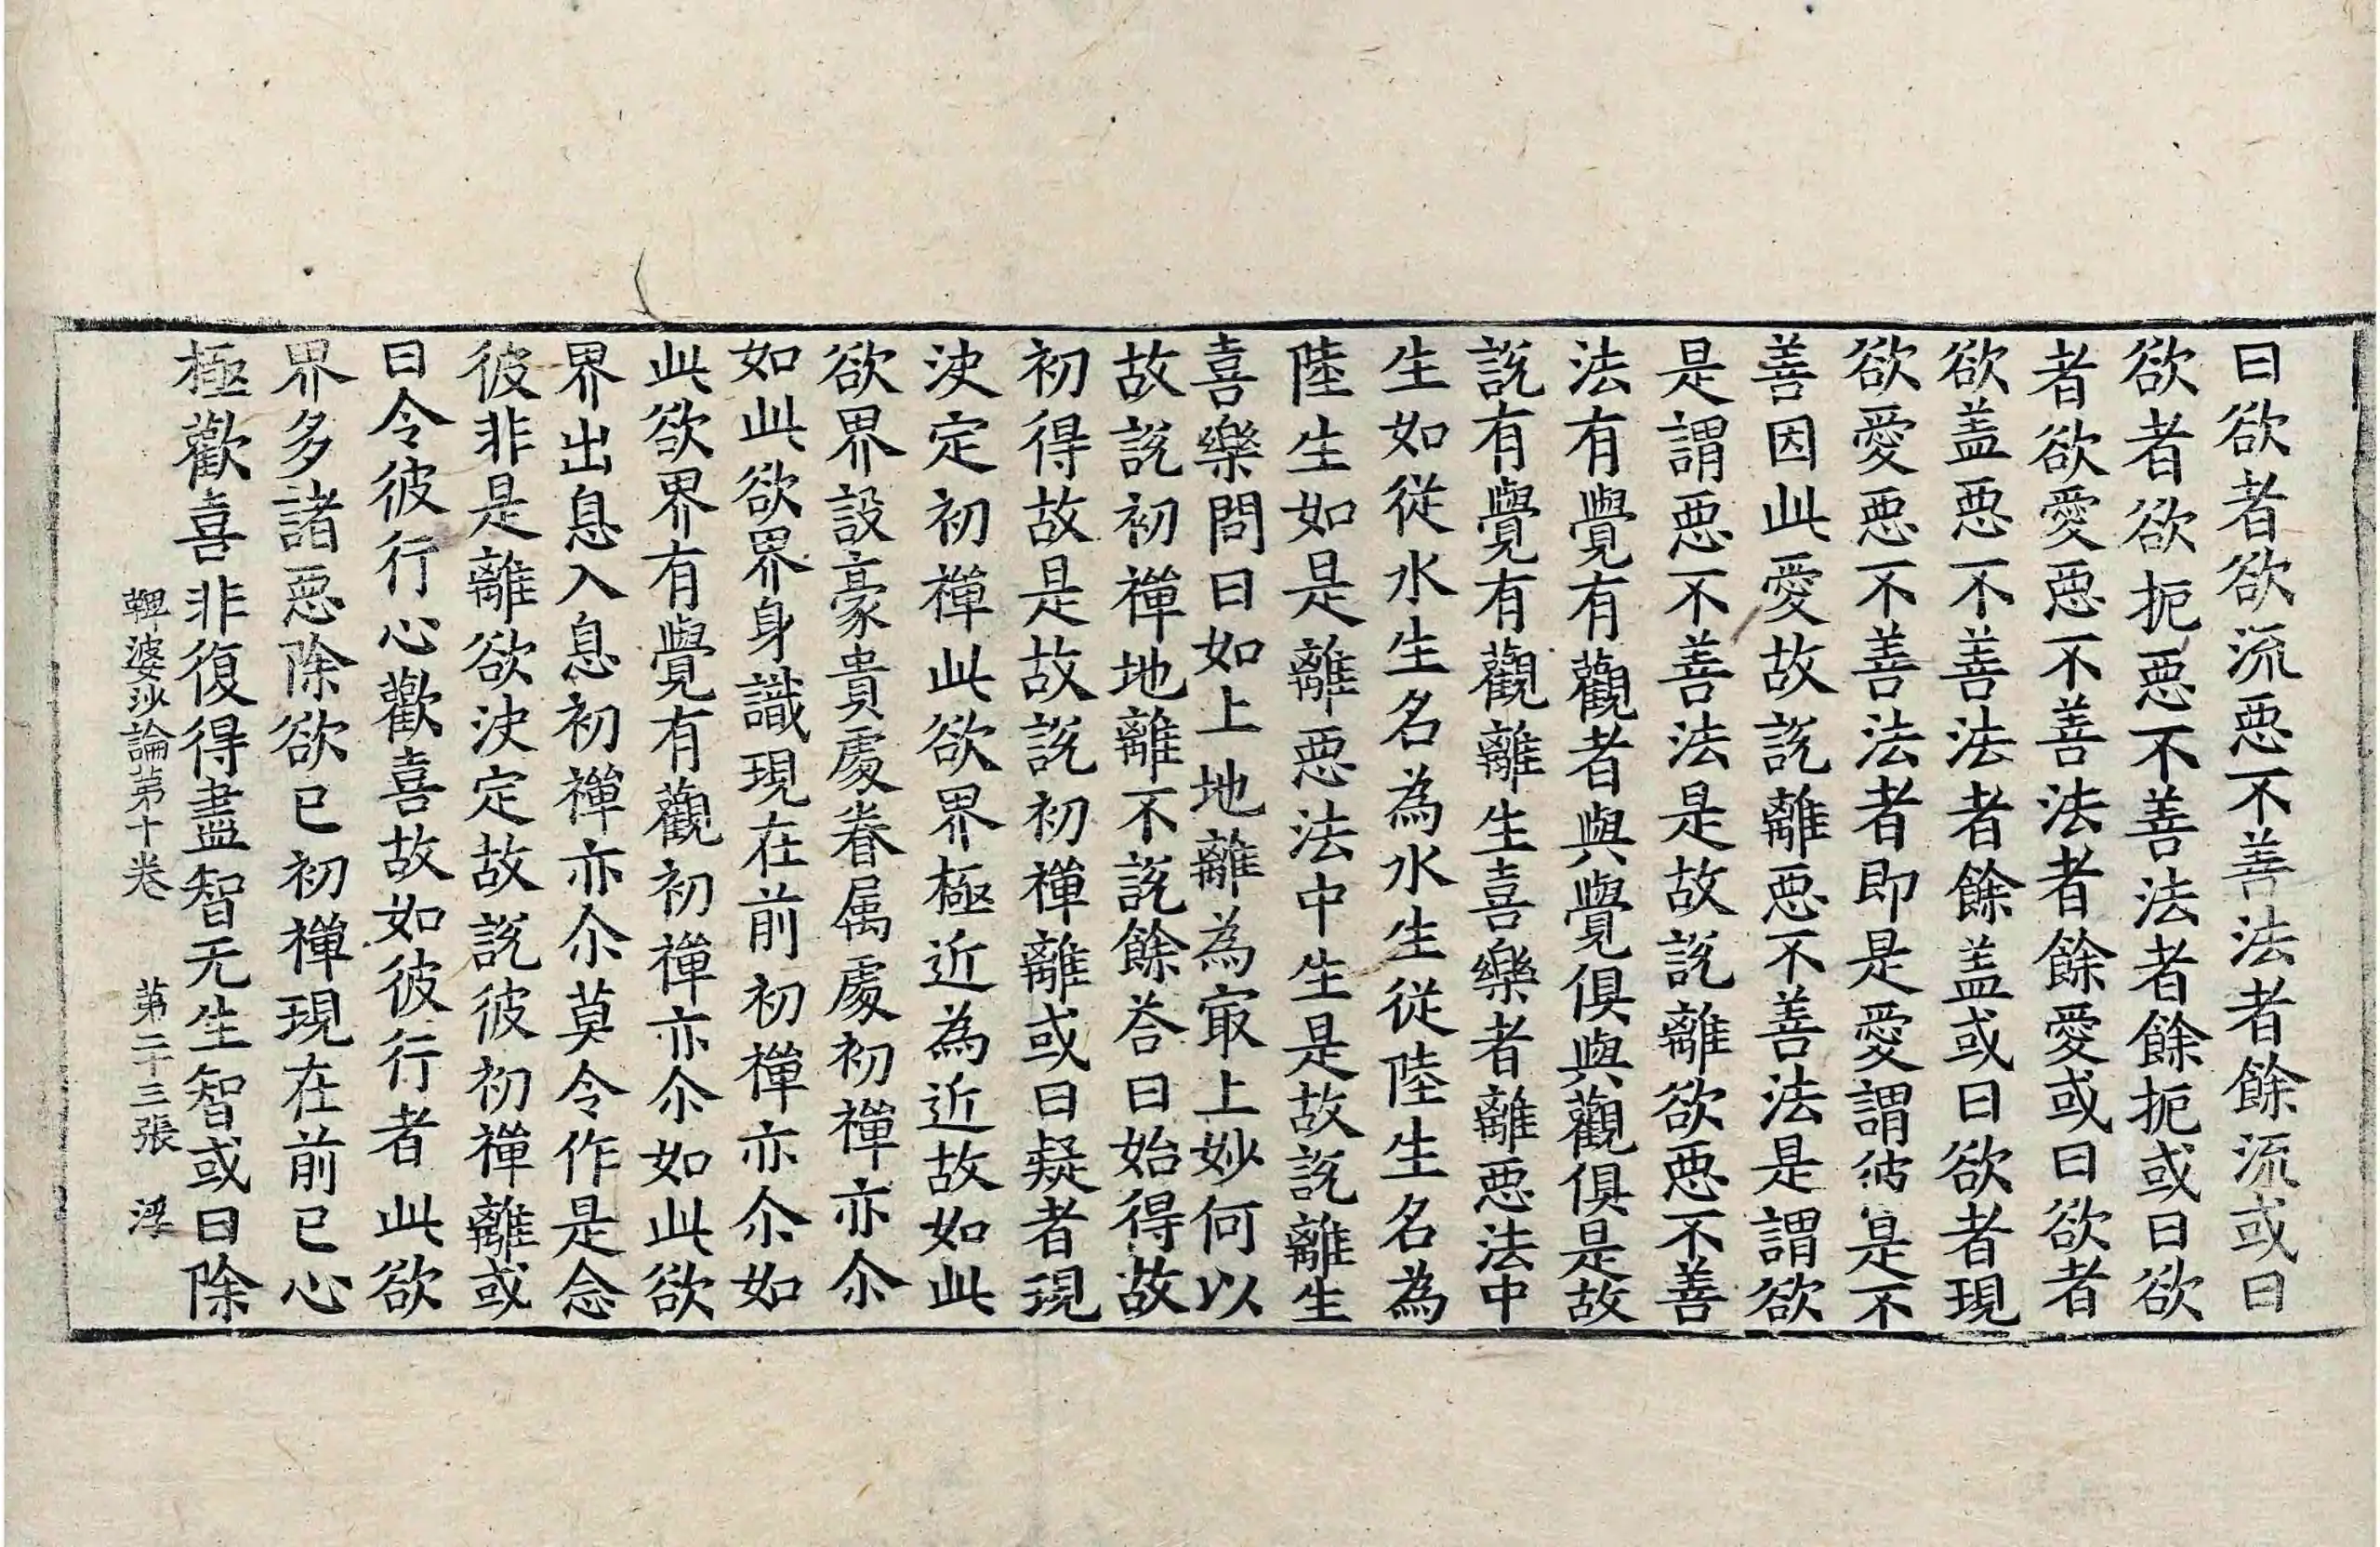 曰欲者欲流惡不善法者餘流或曰
欲者欲扼惡不善法者餘扼或曰欲
者欲愛惡不善法者餘愛或曰欲者
欲盖惡不善法者餘盖或曰欲者現
欲愛惡不善法者即是愛謂彼是不
善因此愛故說離惡不善法是謂欲
是謂惡不善法是故說離欲惡不善
法有覺有觀者與覺俱與觀俱是故
說有覺有觀離生喜樂者離惡法中
生如從水生名為水生從陸生名為
陸生如是離惡法中生是故說離生
喜樂問曰如上地離為㝡上妙何以
故說初禪地離不說餘荅曰始得故
初得故是故說初禪離或曰疑者現
決定初禪此欲界極近為近故如此
欲界設豪貴處眷属處初禪亦尒
如此欲界身識現在前初禪亦尒如
此欲界有覺有觀初禪亦尒如此欲
界出息入息初禪亦尒莫令作是念
彼非是離欲決定故說彼初禪離或
曰令彼行心歡喜故如彼行者此欲
界多諸惡除欲已初禪現在前已心
極歡喜非復得盡智无生智或曰除
鞞婆沙論苐十卷　苐二十三張　浮